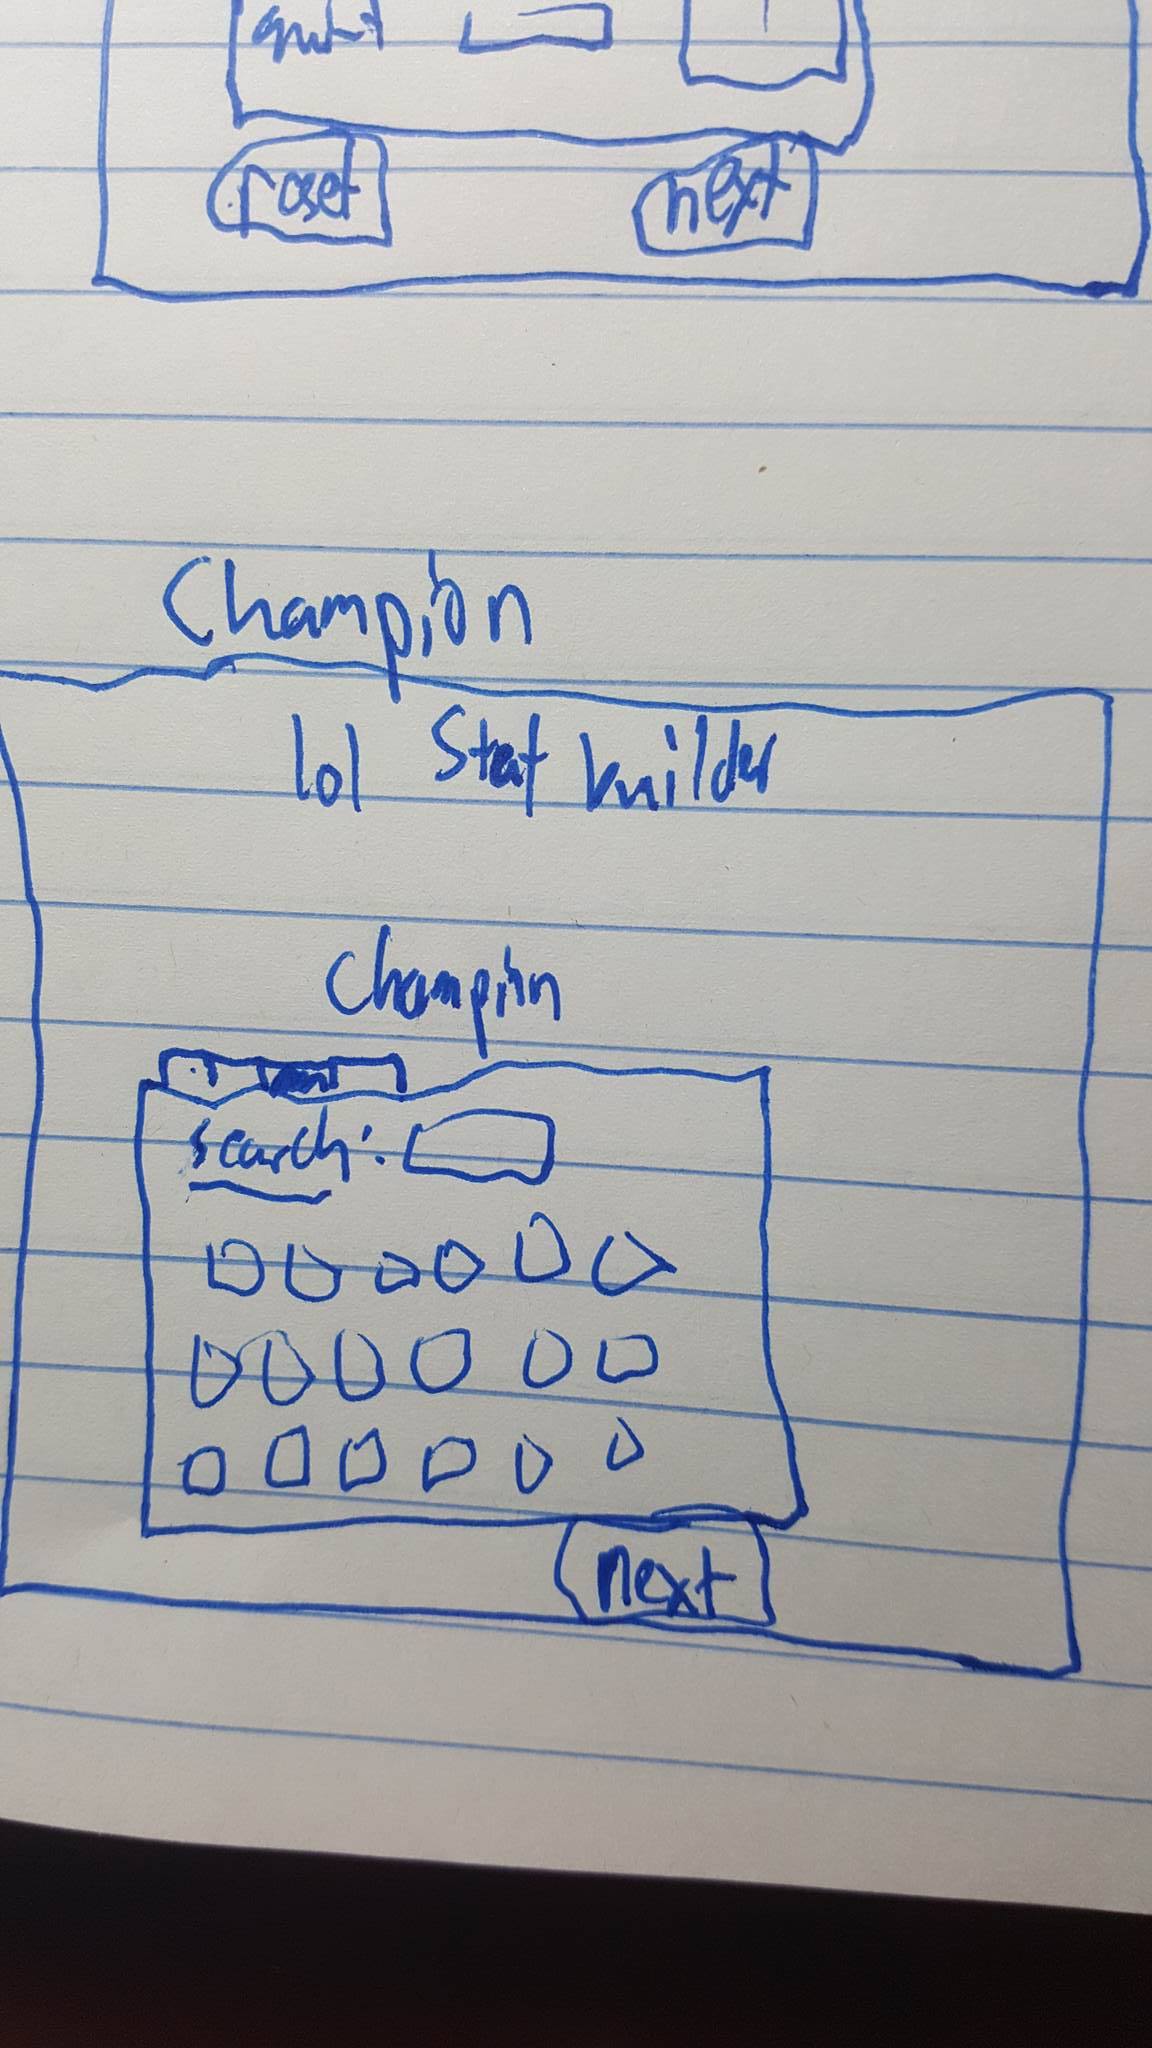 reset
next
Champion
lol Stat builder
Champion
search:
next